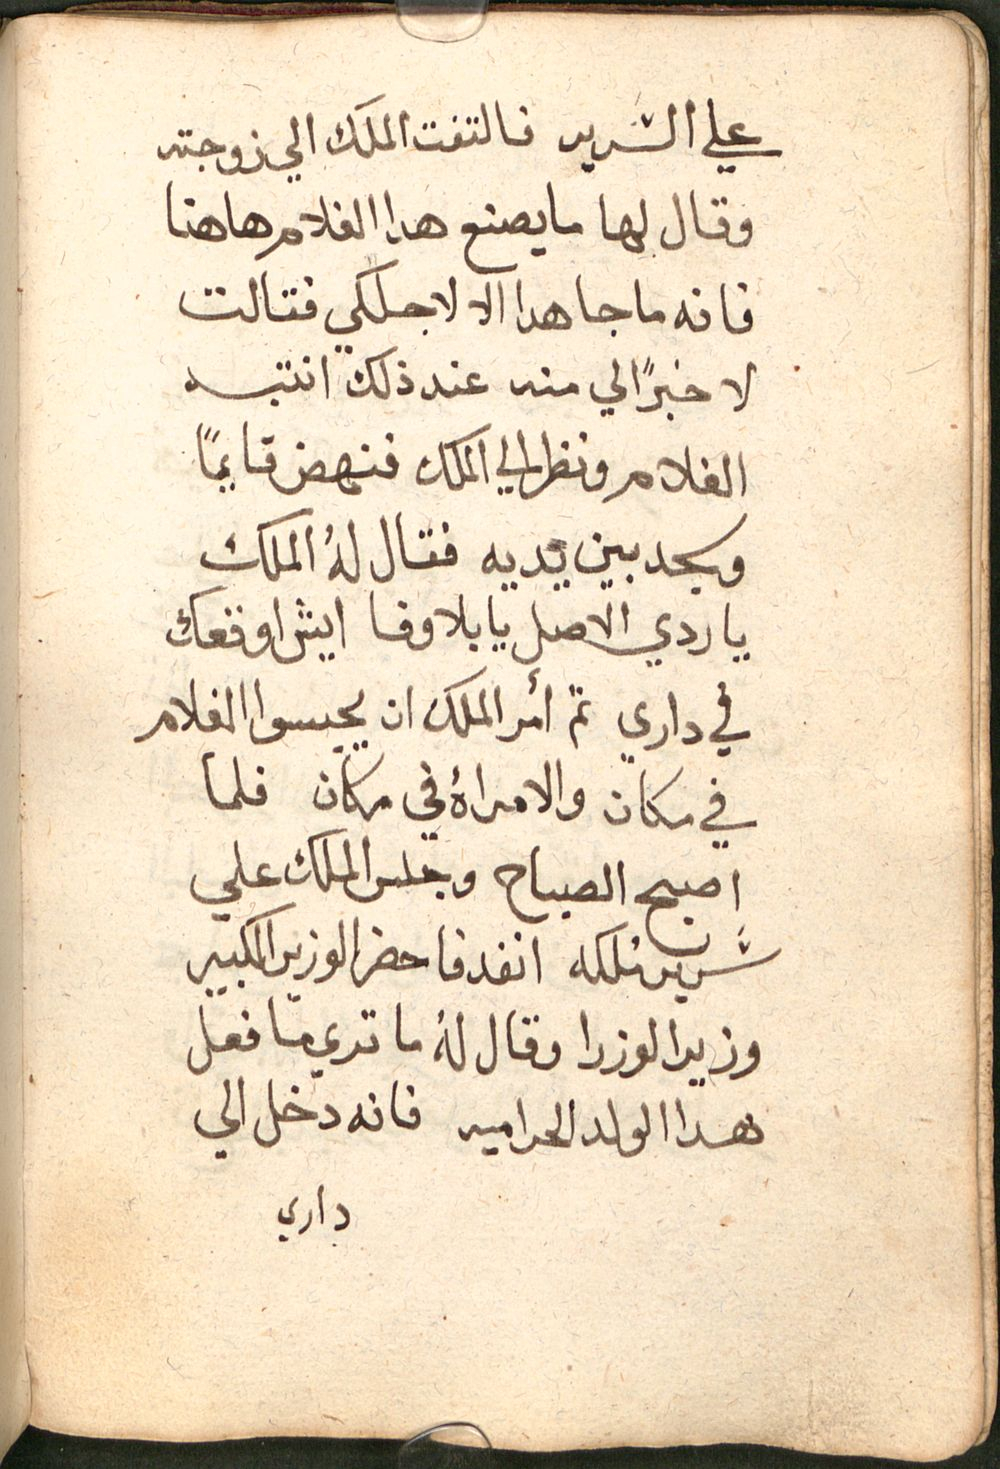 علي السرير فالتفت الملك الي زوجته
وقال لها ما يصنع هدا الغلام هاهنا
فانه ما جا هدا الا لاجلكي فقالت
لا خبرًا لي منه عند ذلك انتبه
الغلام ونظر الي الملك فنهض قايمًا
وسجد بين يديه فقال لهُ الملك
يا ردي الاصل يا بلا وفا ايش اوقعك
في داري ثم أمر الملك ان يحبسوا الغلام
في مكان والامراةُ في مكان فلما
اصبح الصباح وجلس الملك علي
سرير ملكه انفد فاحضر الوزير الكبير
وزير الوزرا وقال لهُ ما تري ما فعل
هدا الولد الحراميه فانه دخل الي
داري